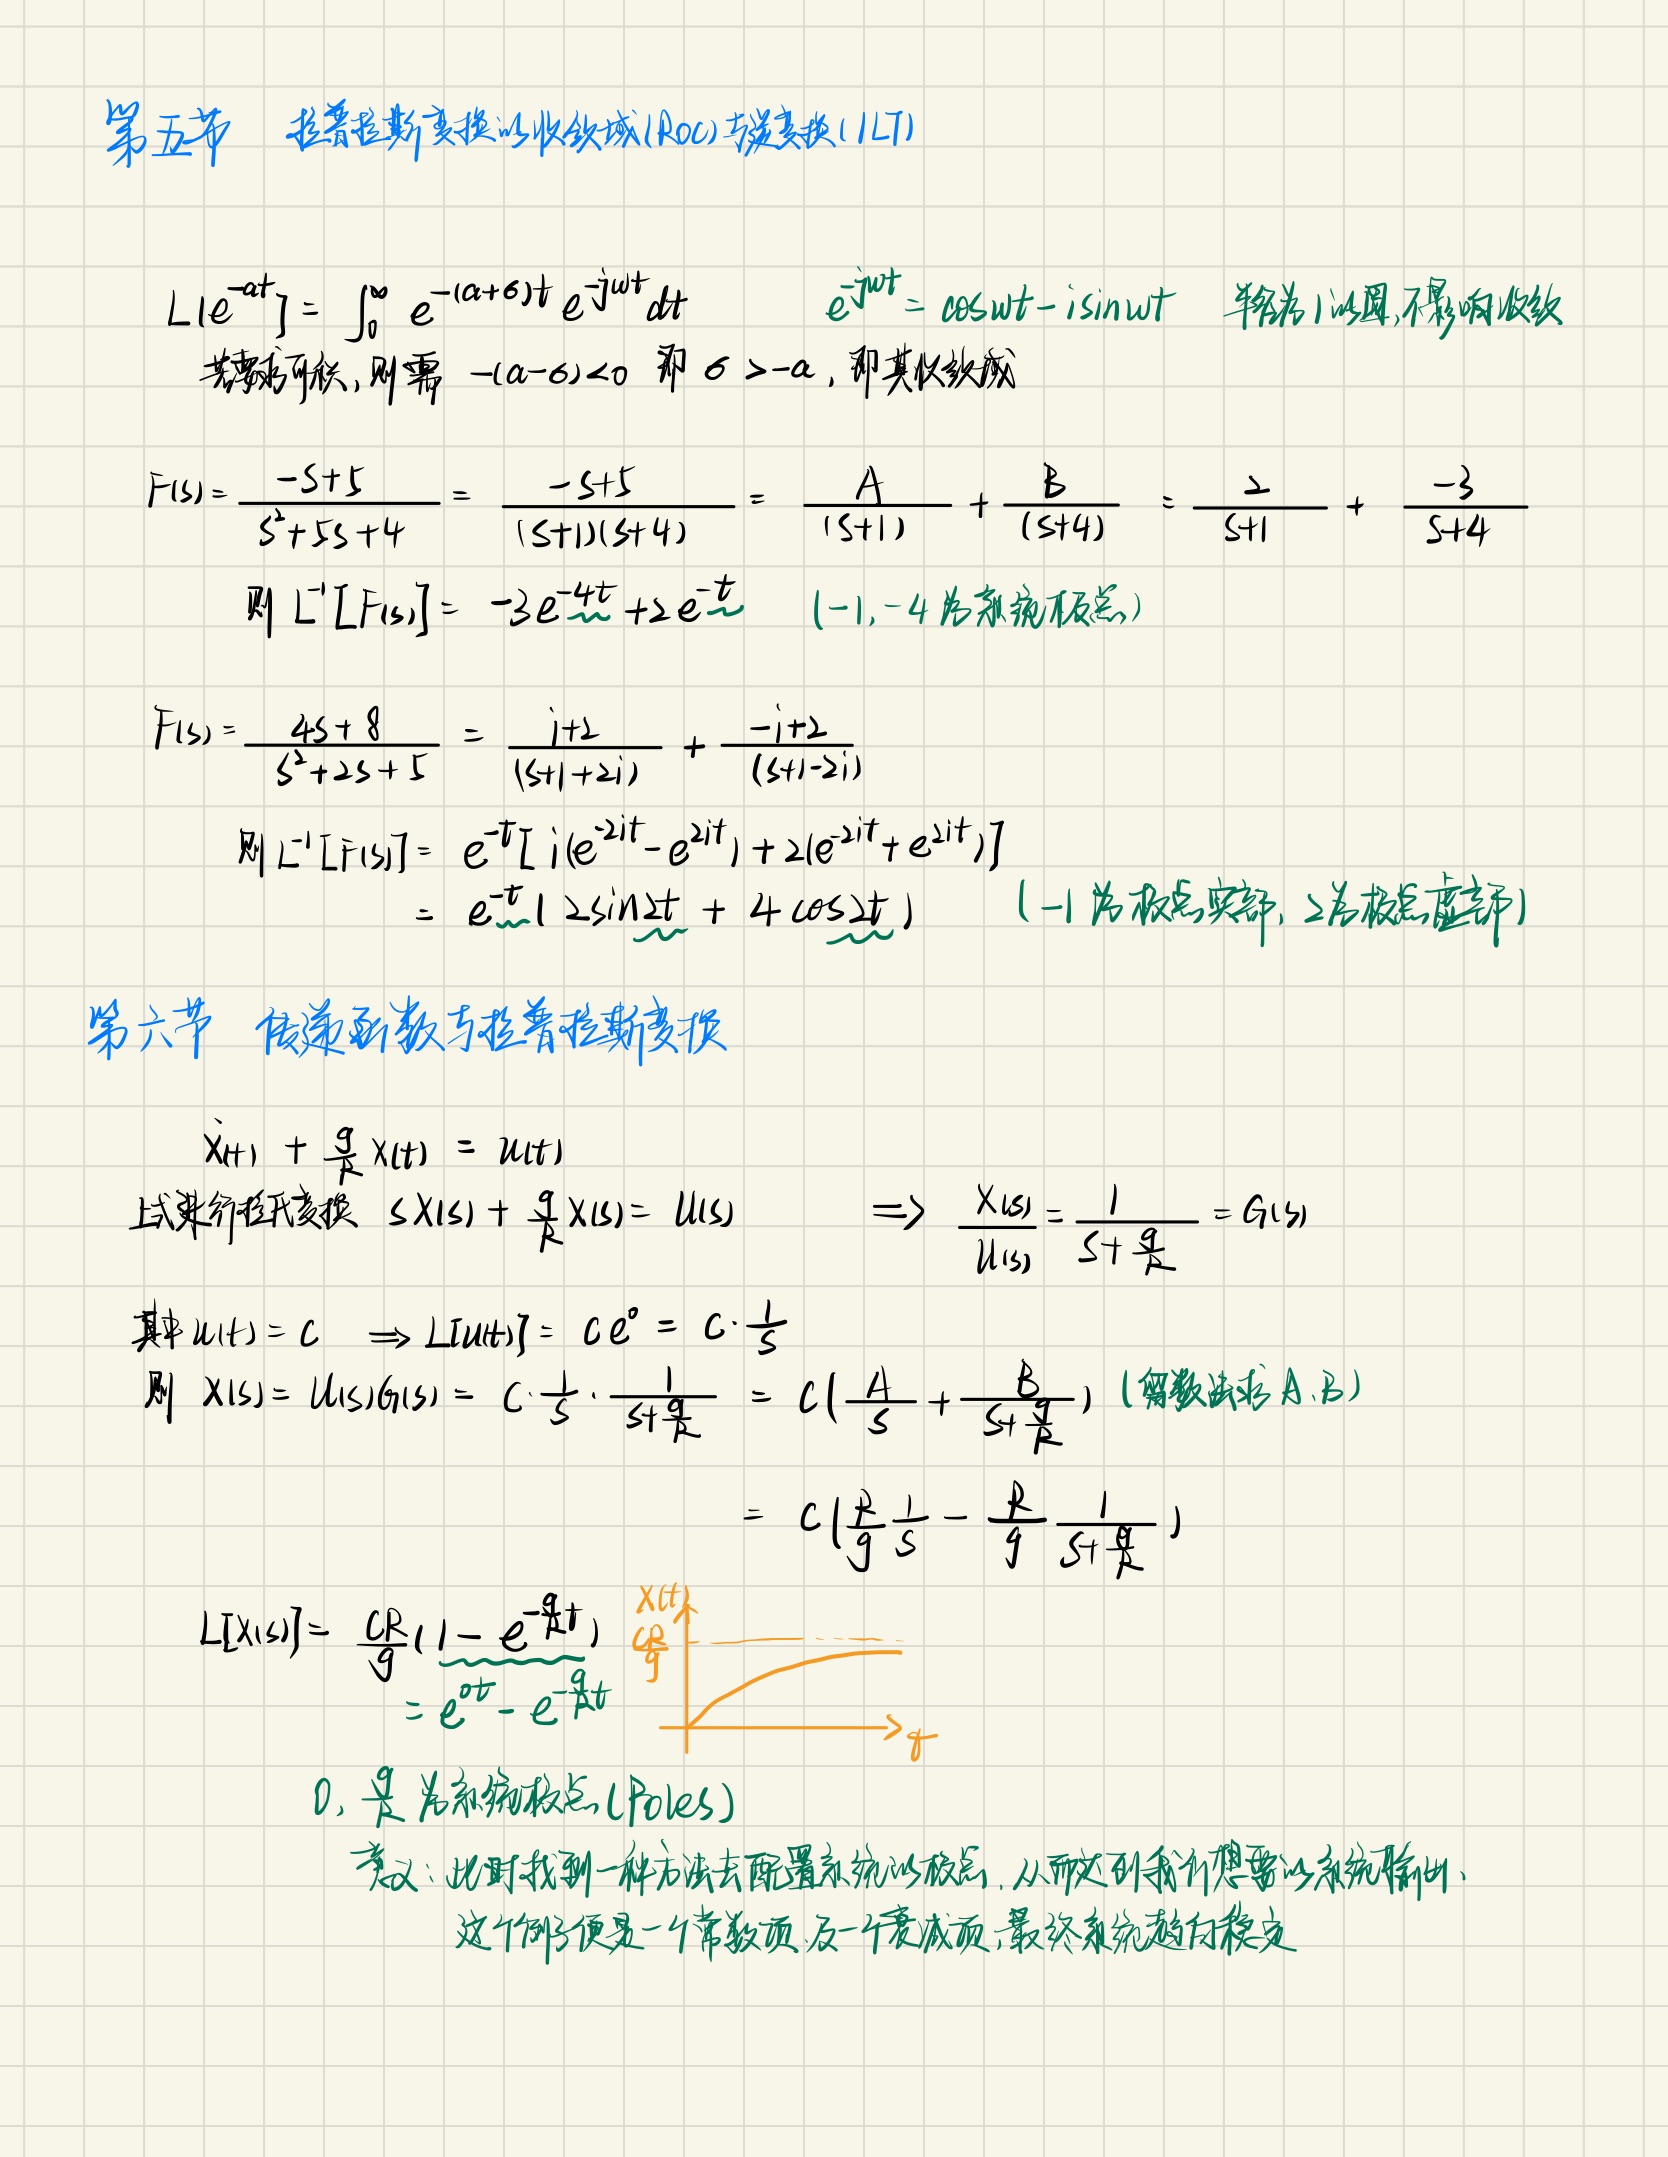 第五节 拉普拉斯变换的收敛域(ROC)与逆变换(ILT)
L[e^{-at}] = ∫_0^∞ e^{-(a+σ)t} e^{-jωt} dt e^{-jωt} = cosωt - isinωt 半径为1的圆,不影响收敛
若要求可积,则需 -(a-σ)<0 即 σ >-a, 即其收敛域
F(s) = \frac{-s+5}{s^2+5s+4} = \frac{-s+5}{(s+1)(s+4)} = \frac{A}{(s+1)} + \frac{B}{(s+4)} = \frac{2}{s+1} + \frac{-3}{s+4}
则 L^{-1}[F(s)] = -3e^{-4t} + 2e^{-t} (-1,-4为系统极点)
F(s) = \frac{4s+8}{s^2+2s+5} = \frac{i+2}{(s+1+2i)} + \frac{-i+2}{(s+1-2i)}
则 L^{-1}[F(s)] = e^{-t}[i(e^{-2it} - e^{2it}) + 2(e^{-2it} + e^{2it})]
= e^{-t}(2sin2t + 4cos2t) (-1为极点实部, 2为极点虚部)
第六节 传递函数与拉普拉斯变换
ẋ(t) + \frac{g}{R} x(t) = u(t)
上式进行拉氏变换 sX(s) + \frac{g}{R}X(s) = U(s) ⇒ \frac{X(s)}{U(s)} = \frac{1}{s+\frac{g}{R}} = G(s)
其中 u(t) = C ⇒ L[u(t)] = Ce^0 = C·\frac{1}{s}
则 X(s) = U(s)G(s) = C·\frac{1}{s}·\frac{1}{s+\frac{g}{R}} = C(\frac{A}{s} + \frac{B}{s+\frac{g}{R}}) (留数法求A、B)
= C(\frac{R}{g}\frac{1}{s} - \frac{R}{g}\frac{1}{s+\frac{g}{R}})
L[X(s)] = \frac{CR}{g}(1 - e^{-\frac{g}{R}t})
= e^{0t} - e^{-\frac{g}{R}t}
x(t)
\frac{CR}{g}
t
0, \frac{g}{R} 为系统极点(Poles)
意义:此时找到一种方法去配置系统的极点,从而达到我们想要的系统输出、
这个例子便是一个常数项及一个衰减项,最终系统趋向稳定